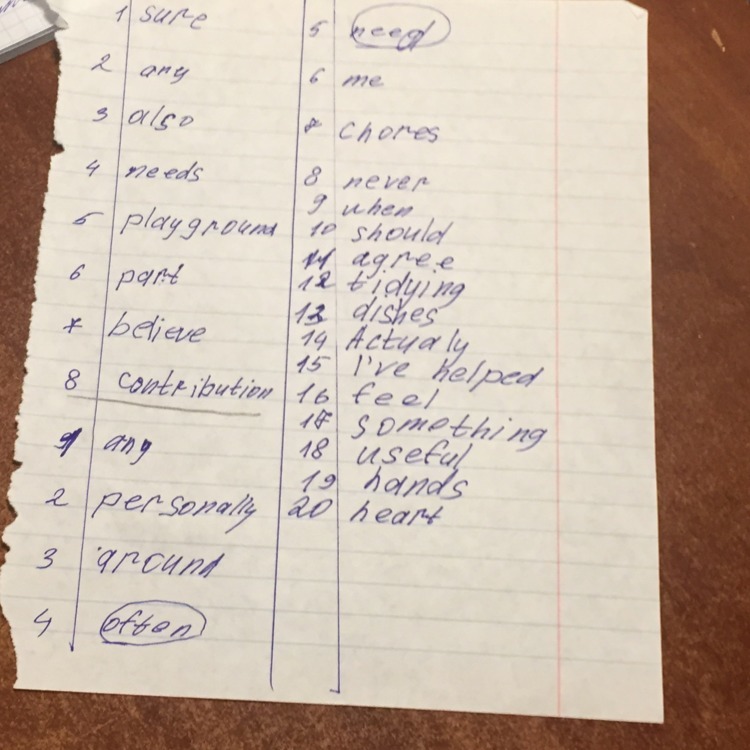 1 sure
2 any
3 also
4 needs
5 playground
6 part
7 believe
8 contribution
1 any
2 personally
3 around
4 often
5 need
6 me
7 chores
8 never
9 when
10 should
11 agree
12 tidying
13 dishes
14 Actualy
15 I've helped
16 feel
17 something
18 useful
19 hands
20 heart